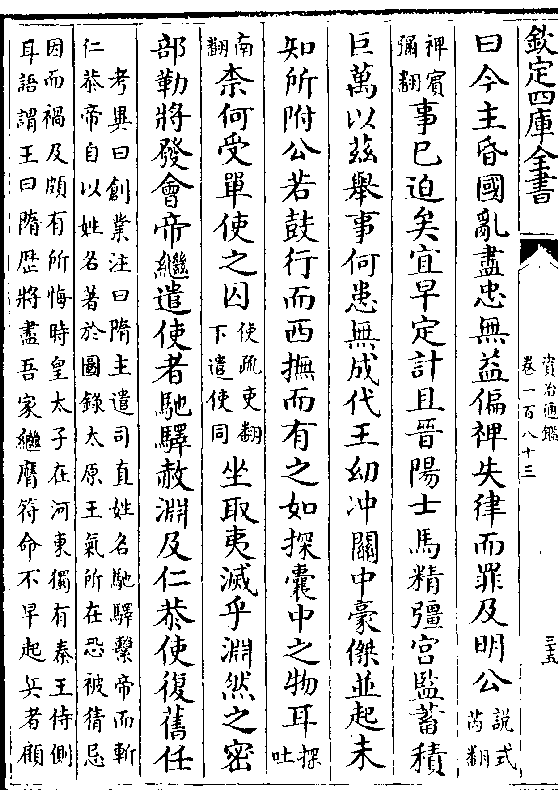 欽定四庫全書
資治通鑑
卷一百八十三
三五
曰今主昏國亂盡忠無益偏裨失律而罪及明公説式芮翻
裨賓彌翻事已迫矣宜早定計且晉陽士馬精彊宮監蓄積
巨萬以兹舉事何患無成代王幼冲關中豪傑並起未
知所附公若鼓行而西撫而有之如探囊中之物耳探吐
南翻柰何受單使之囚使疏吏翻下遣使同坐取夷滅乎淵然之密
部勒將發會帝繼遣使者馳驛赦淵及仁恭使復舊任
考異曰創業注曰隋主遣司直姓名馳驛繫帝而斬
仁恭帝自以姓名著於圖錄太原王氣所在恐被猜忌
因而禍及頗有所悔時皇太子在河東獨有秦王侍側
耳語謂王曰隋歴將盡吾家繼膺符命不早起兵者顧